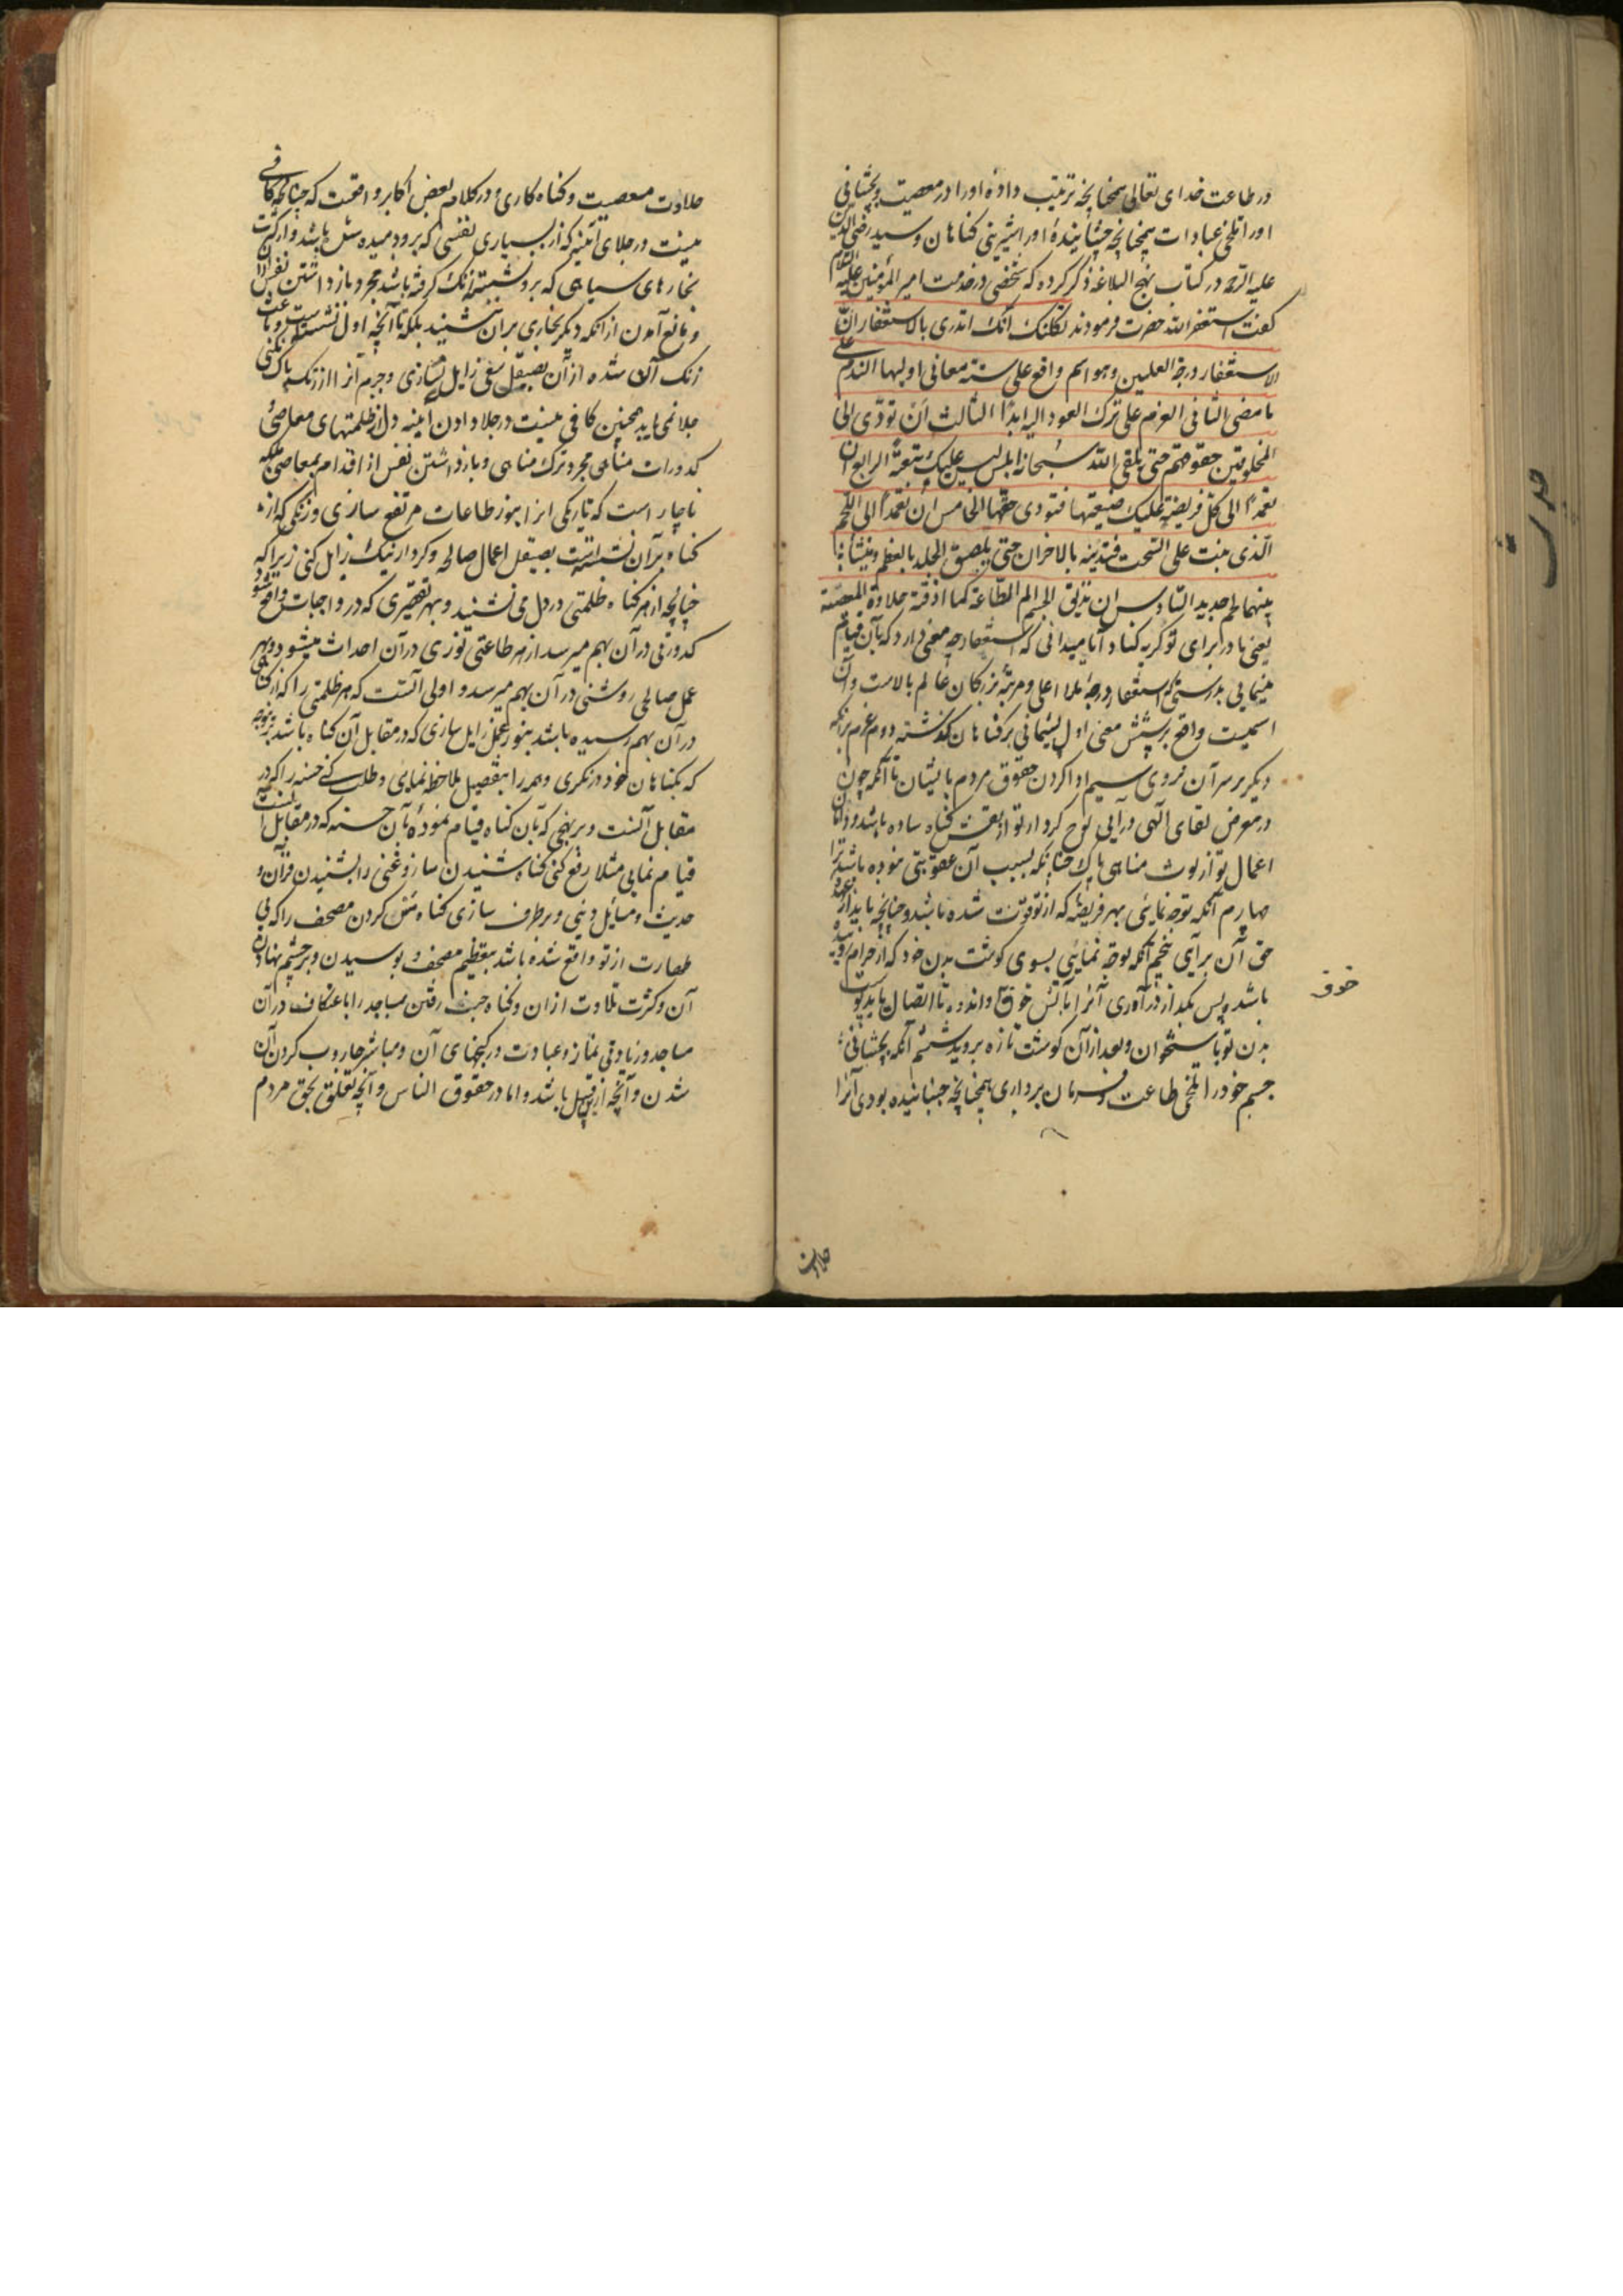 در طاعت خدای تعالی همچنانچه ترتیب داده اورا در معصیت و بچشانی
اورا تلخی عبادات همچنانچه چشانیدهٔ اورا شیرینی کناهان و سید رضی الدین
علیه الرحمه در کتاب نهج البلاغه ذکر کرده که شخصی در خدمت امیر المؤمنین علیه السلام
کفت استغفر الله حضرت فرمودند ثکلتک امّک اتدری بالاستغفار انّ
الاستغفار درجة العلیین وهو اسم واقع علی ستة معانی اولیها الندم علی
ما مضی الثانی العزم علی ترک العود الیه ابدًا الثالث ان تؤدّی الی
المخلوقین حقوقهم حتی یلقی الله سبحانه املس لیس علیک تبعة الرابع ان
تعمد الی کل فریضة علیک ضیعتها فتودی حقها الخامس ان تعمد الی اللحم
الّذی ینبت علی السّحت فتذیبه بالاحزان حتی یلصق الجلد بالعظم وینشأ
بینهما لحم جدید السّادس ان تذیق الجسم الم الطّاعة کما اذقته حلاوة المعصیة
یعنی مادر برای تو کریه کناد آیا میدانی که استغفار چه معنی دارد که بآن قیام
مینمایی بدرستیکه استغفار درجهٔ ملاء اعلی و مرتبهٔ بزرکان عالم بالاست وآن
اسمیست واقع بر شش معنی اول پشیمانی بر کناهان کذشته دوم عزم برانکه
دیکر بر سر آن نروی سیم ادا کردن حقوق مردم بایشان تا آنکه چون
در معرض لقای آلهی درآیی لوح کردار تو از نقش کناه ساده باشد ودامان
اعمال تو از لوث مناهی پاک چنانکه بسبب آن عقوبتی نبوده باشد ترا
چهارم آنکه توجه نمایئی بهر فریضهٔ که از تو فوت شده باشد وچنانچه باید از عهده
حق آن برآیی پنجم آنکه توجّه نمایئی بسوی کوشت بدن خود که از حرام روییده
باشد پس بکداز درآوری آنرا بآتش خوف واندوه تا اتصال یابد پوست
بدن تو باستخوان وبعد از آن کوشت تازه بروید ششم آنکه بچشانی
جسم خود را تلخی طاعت وفرمان برداری همچنانچه چشانیده بودی آنرا
خوف
حلاوت
حلاوت معصیت وکناه کاری ودر کلام بعض اکابر واقعست که چنانچه کافی
نیست در جلای آئینه که از بسیاری نفسی که برو دمیده شده باشد واز کثرت
بخارهای سیاهی که برو نشسته زنک کرفته باشد مجرد بازداشتن نفس ازان
ومانع آمدن از آنکه دیکر بخاری بران ننشیند بلکه تا آنچه اول نشسته است وباعث
زنک آن شده از آن بصیقل سعی زایل نسازی وجرم آنرا از زنک پاک نکنی
جلا نمی یابد همچنین کافی نیست در جلا دادن آیینه دل از ظلمتهای معاصی
کدورات مناهی مجرد ترک مناهی وبازداشتن نفس از اقدام بمعاصی بلکه
ناچار است که تاریکی انرا بنور طاعات مرتفع سازی وزنکی که از
کناه برآن نشسته است بصیقل اعمال صالحه وکردار نیک زایل کنی زیرا که
چنانچه از هر کناه ظلمتی در دل می نشیند وبهر تقصیری که در واجبات واقع شود
کدورتی در آن بهم میرسد از هر طاعتی نوری در آن احداث میشود وبهر
عمل صالحی روشنی در آن بهم میرسد و اولی آنست که هر ظلمتی را که از کناهی
در آن بهم رسیده باشد بنور عملی زایل سازی که در مقابل آن کناه باشد
که بکناهان خود درنکری وهمه را بتفصیل ملاحظه نمایی وطلب کنی حسنه را که در
مقابل آنست وبر نهجی که بآن کناه قیام نموده بآن حسنه که در مقابل آنست
قیام نمایی مثلا رفع کنی کناه شنیدن ساز وغنی را بشنیدن قرآن و
حدیث ومسائل دینی وبرطرف سازی کناه مس کردن مصحف را که بی
طهارت از تو واقع شده باشد بتعظیم مصحف وبوسیدن وبر چشم نهادن
آن وکثرت تلاوت ازان وکناه جنب رفتن مساجد را باعتکاف در آن
مساجد وزیادتی نماز وعبادت در کنجهای آن ومباشر جاروب کردن آن
شدن وآنچه ازین قبیل باشد واما در حقوق الناس وآنچه تعلق بحق مردم